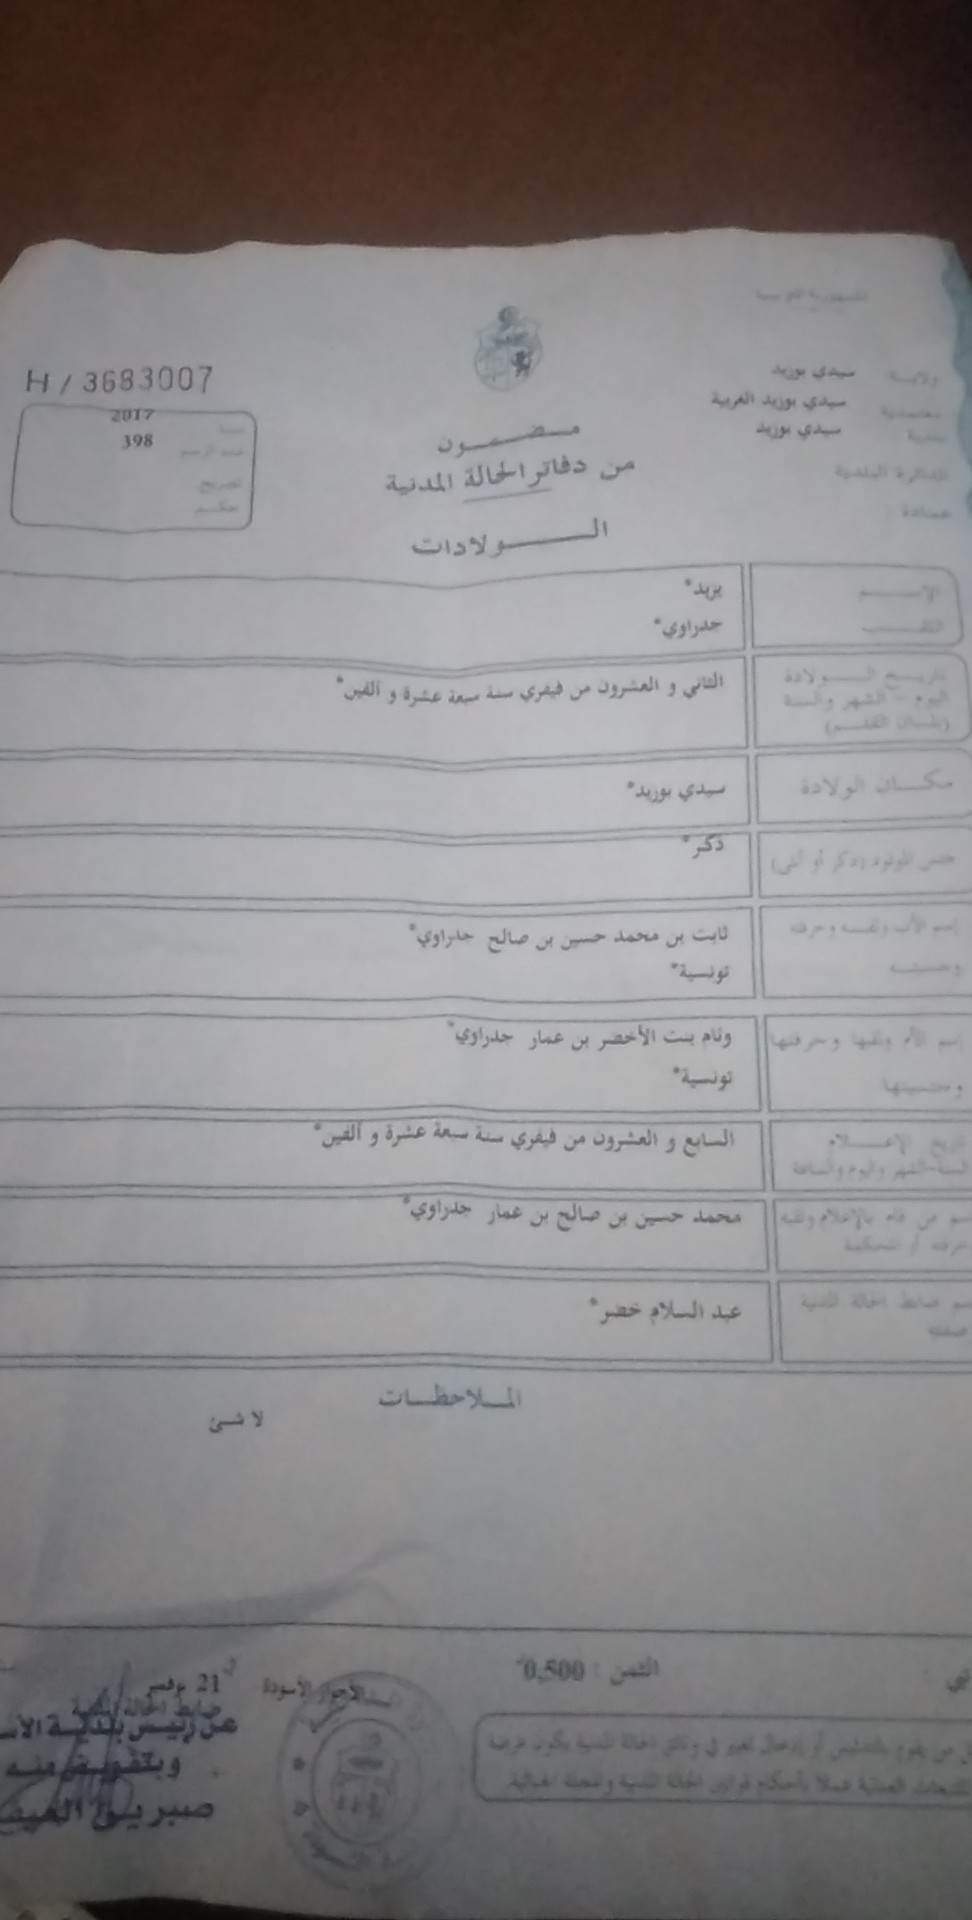 الجمهورية التونسية
ولاية سيدي بوزيد
معتمدية سيدي بوزيد الغربية
بلدية سيدي بوزيد
الدائرة البلدية
عمادة
H / 3683007
سنة 2017
عدد الرسم 398
تصريح
حكم
مضمون
من دفاتر الحالة المدنية
الولادات
الإسم يزيد*
اللقب جدراوي*
تاريخ الولادة
اليوم - الشهر والسنة
(بلسان القلم)
الثاني و العشرون من فيفري سنة سبعة عشرة و ألفين*
مكان الولادة سيدي بوزيد*
جنس المولود (ذكر أو أنثى) ذكر*
إسم الأب ولقبه وحرفته ثابت بن محمد حسين بن صالح جدراوي*
وجنسيته تونسية*
إسم الأم ولقبها وحرفتها وئام بنت الأخضر بن عمار جدراوي*
وجنسيتها تونسية*
تاريخ الإعلام السابع و العشرون من فيفري سنة سبعة عشرة و ألفين*
السنة-الشهر واليوم والساعة
إسم من قام بالإعلام ولقبه محمد حسين بن صالح بن عمار جدراوي*
حرفته أو المحكمة
إسم ضابط الحالة المدنية عبد السلام خضر*
صفته
الملاحظات
لا شئ
الثمن : 0,500
الأسودة
21 نوفمبر
ضابط الحالة المدنية
عن رئيس بلدية
وبتفويض منه
كل من يقوم بالتدليس أو إدخال تغيير في وثائق الحالة المدنية يكون عرضة
للتتبعات العدلية عملا بأحكام قوانين الحالة المدنية والمجلة الجنائية.